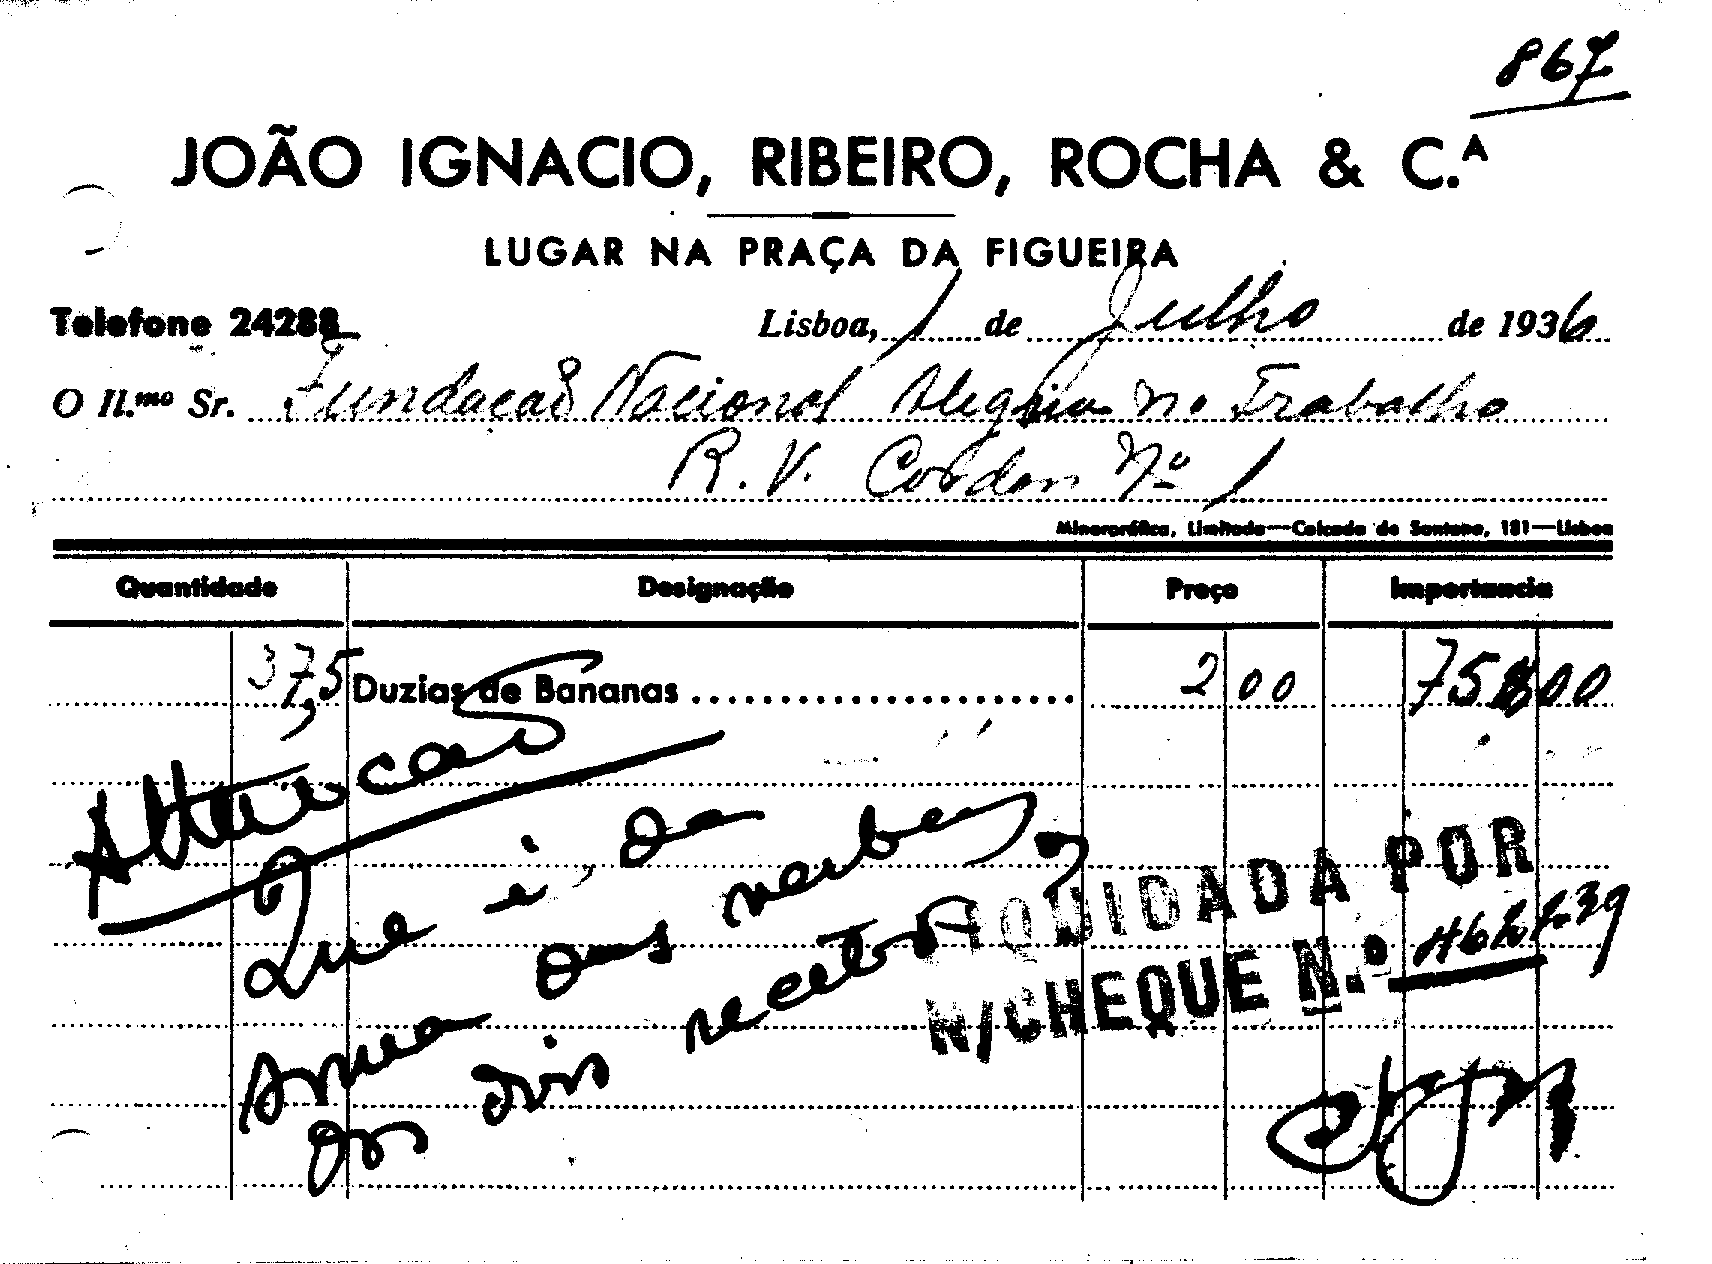 867
JOÃO IGNACIO, RIBEIRO, ROCHA & C.ᴬ
LUGAR NA PRAÇA DA FIGUEIRA
Telefone 24288
Lisboa, 1 de Julho de 1936
O Il.mo Sr. Fundacaõ Nacional Alegria no Trabalho
R. V. Cordon Nº 1
Minerográfica, Limitada—Calçada de Santana, 181—Lisboa
Quantidade Designação Preço Importancia
37,5 Duzias de Bananas 2 00 75$00
Attencaõ
Que é da
as verbas
os dois recetos
LIQUIDADA POR
N/CHEQUE N.º